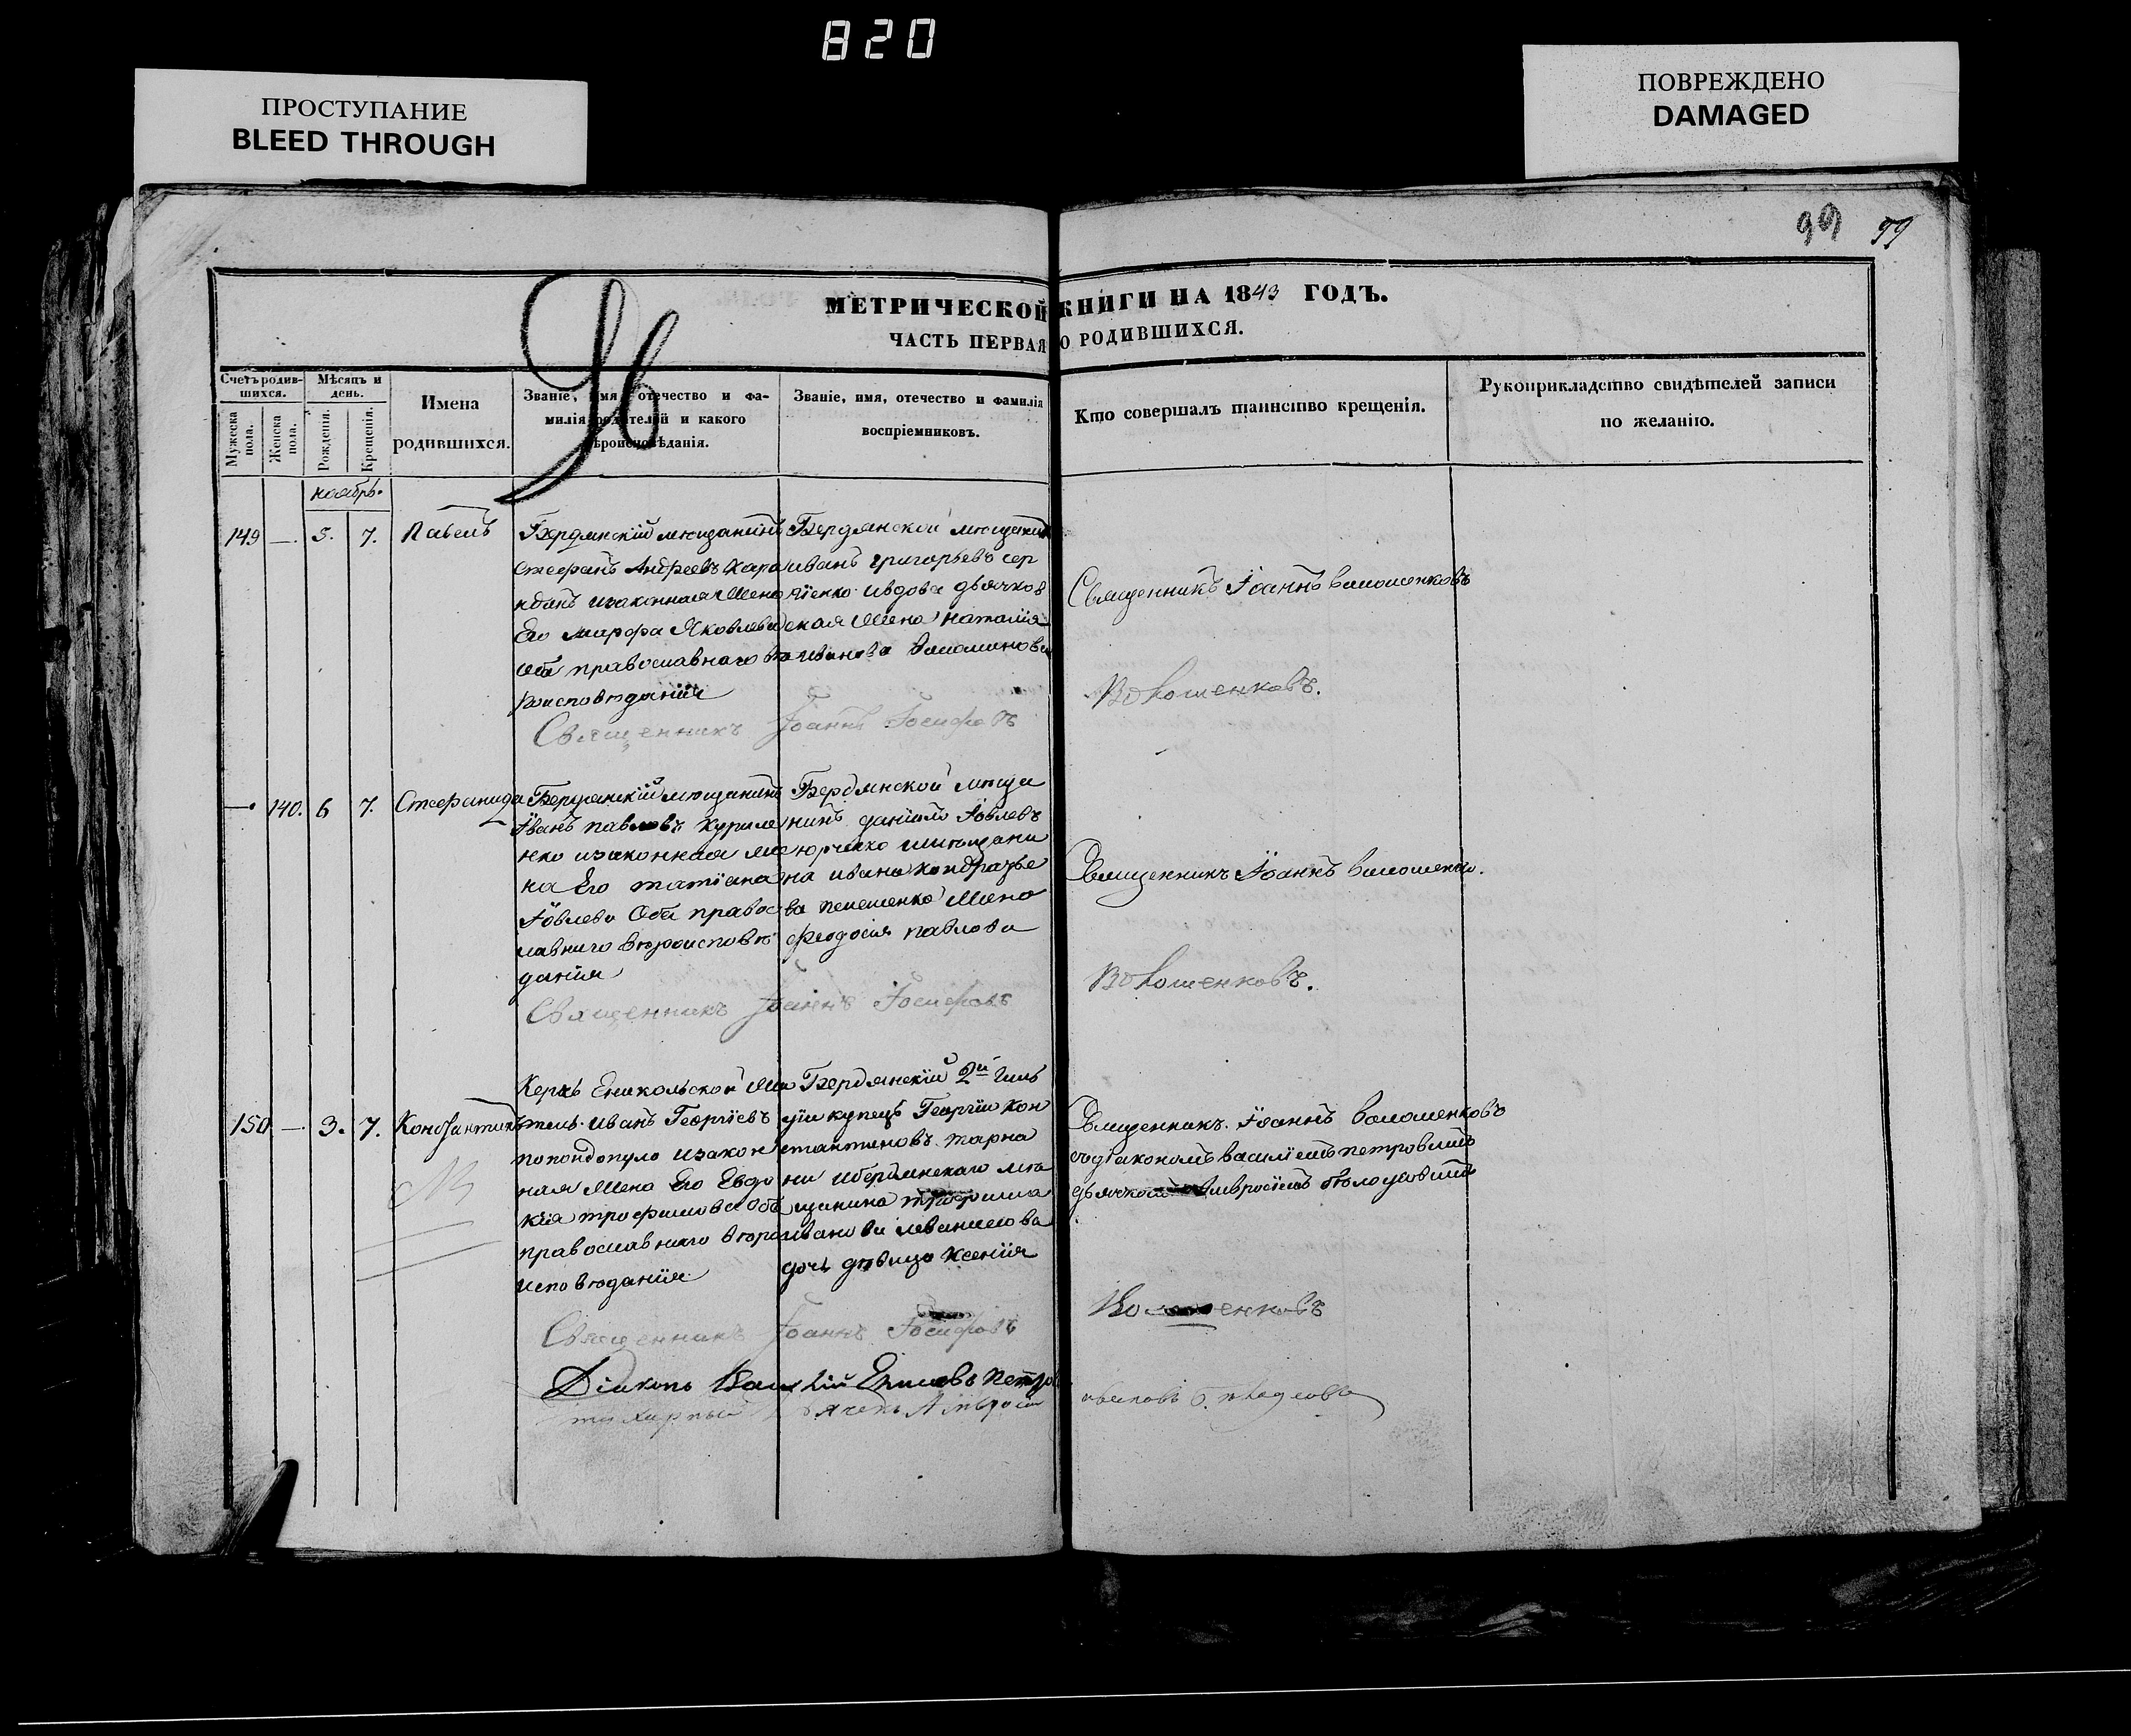 820
ПРОСТУПАНИЕ
BLEED THROUGH
ПОВРЕЖДЕНО
DAMAGED
99 99
МЕТРИЧЕСКОЙ КНИГИ НА 1843 ГОДЪ.
ЧАСТЬ ПЕРВАЯ О РОДИВШИХСЯ.
Счетъ родив-
шихся.
Мужеска
пола.
Женска
пола.
Мѣсяцъ и
день.
Рожденія.
Крещенія.
Имена
родившихся.
Званіе, имя, отечество и фа-
милія родителей и какого
вѣроисповѣданія.
Званіе, имя, отечество и фамилія
воспріемниковъ.
Кто совершалъ таинство крещенія.
Рукоприкладство свидѣтелей записи
по желанію.
ноябрь.
149 — 5. 7. Павелъ
Бердянскій мещанинъ
Стефанъ Андреевъ Кара
изаконная Жена
Его Марфа Яковлева
Оба православнаго вѣ
роисповѣданія
Бердянской мещанинъ
иванъ григорьевъ сер
иенко ивдова дьячков
ская Жена наталія
иванова
Священникъ Іоаннъ Іосифовъ
Священникъ Іоаннъ Волошенковъ
Волошенковъ.
— 140. 6 7. Стефанида
Бердянскій мещанинъ
Іванъ павловъ Куриле
нко изаконная Же
на Его татіана
Іовлева Оба правос
лавнаго вѣроисповѣ
данія
Бердянской меща
нинъ даніилъ Іовлевъ
имещани
на ивана кондратье
ва Жена
феодосія павлова
Священникъ Іоаннъ Іосифовъ
Священникъ Іоаннъ Волошенко.
Волошенковъ.
150 — 3. 7. Константинъ
Керчь Еникольской Жи
тель иванъ Георгіевъ
попондопуло изакон
ная Жена Его Евдо
кія трофимова Оба
православнаго вѣро
исповѣданія
Бердянскій 2й Гиль
діи купецъ Георгій Кон
стантиновъ тарна
ни ибердянскаго мѣ
щанина трофима
иванова
дочь дѣвица Ксенія
Священникъ Іоаннъ Іосифовъ
Діаконъ Василій Петро
Священникъ Іоаннъ Волошенковъ
съдіакономъ василіемъ петровымъ
дьячкомъ Амвросіемъ
Волошенковъ